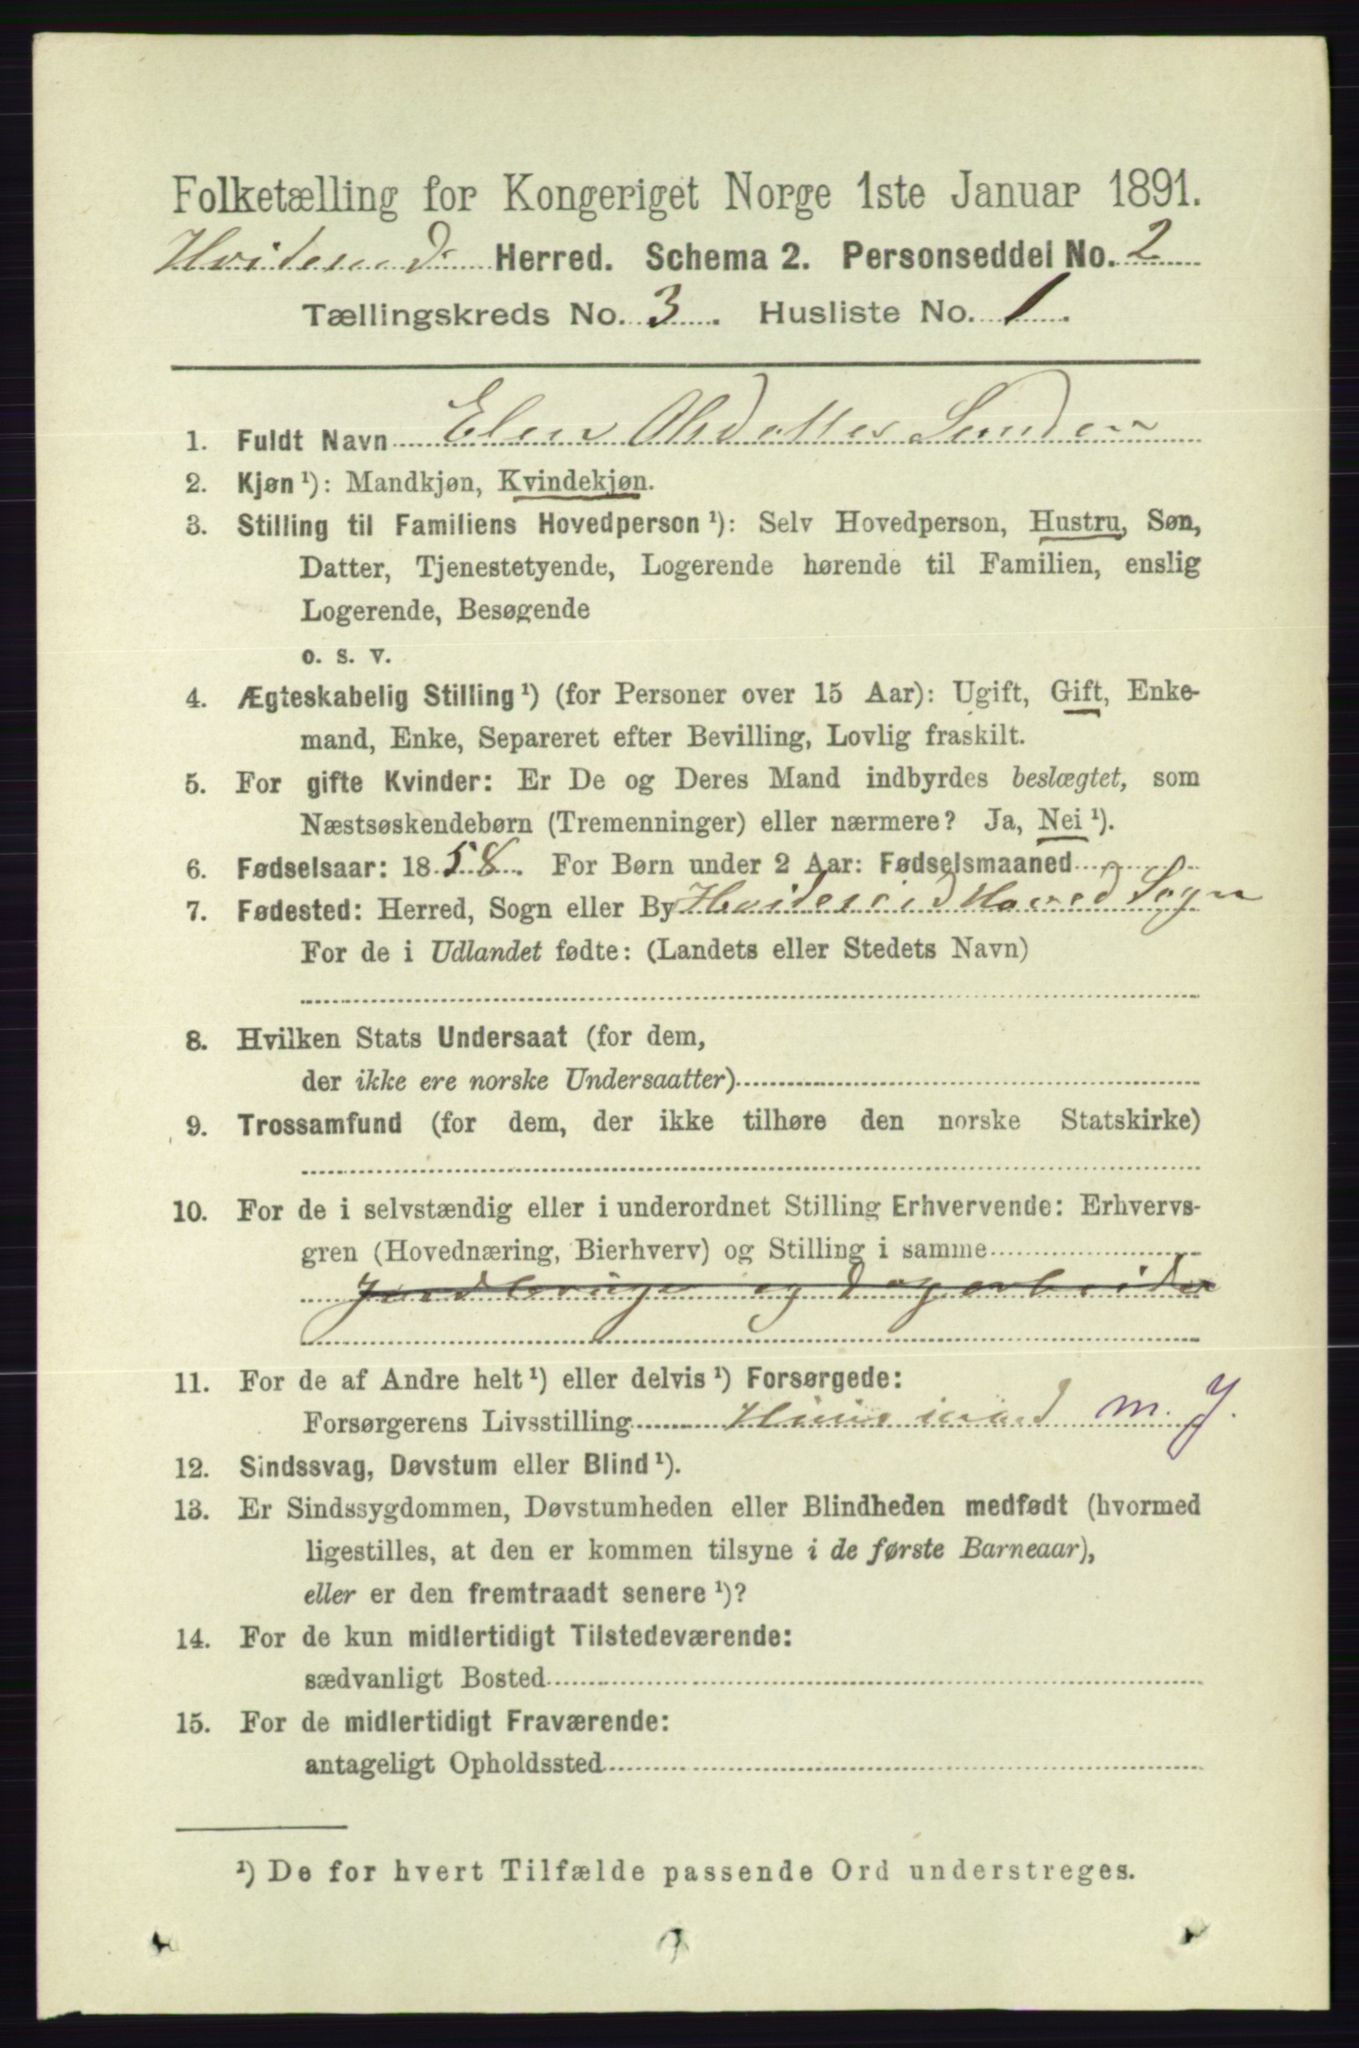 Folketælling for Kongeriget Norge 1ste Januar 1891.
Hvideseid Herred. Schema 2. Personseddel No. 2
Tællingskreds No. 3. Husliste No. 1.
1. Fuldt Navn Elen Olsdatter Sunden
2. Kjøn ¹): Mandkjøn, Kvindekjøn.
3. Stilling til Familiens Hovedperson ¹): Selv Hovedperson, Hustru, Søn,
Datter, Tjenestetyende, Logerende hørende til Familien, enslig
Logerende, Besøgende
o. s. v.
4. Ægteskabelig Stilling ¹) (for Personer over 15 Aar): Ugift, Gift, Enke-
mand, Enke, Separeret efter Bevilling, Lovlig fraskilt.
5. For gifte Kvinder: Er De og Deres Mand indbyrdes beslægtet, som
Næstsøskendebørn (Tremenninger) eller nærmere? Ja, Nei ¹).
6. Fødselsaar: 1858. For Børn under 2 Aar: Fødselsmaaned
7. Fødested: Herred, Sogn eller By Hvideseid Hoved Sogn
For de i Udlandet fødte: (Landets eller Stedets Navn)
8. Hvilken Stats Undersaat (for dem,
der ikke ere norske Undersaatter)
9. Trossamfund (for dem, der ikke tilhøre den norske Statskirke)
10. For de i selvstændig eller i underordnet Stilling Erhvervende: Erhvervs-
gren (Hovednæring, Bierhverv) og Stilling i samme
Jordbruger og dagarbeider
11. For de af Andre helt ¹) eller delvis ¹) Forsørgede:
Forsørgerens Livsstilling Huusmand m. J.
12. Sindssvag, Døvstum eller Blind ¹).
13. Er Sindssygdommen, Døvstumheden eller Blindheden medfødt (hvormed
ligestilles, at den er kommen tilsyne i de første Barneaar),
eller er den fremtraadt senere ¹)?
14. For de kun midlertidigt Tilstedeværende:
sædvanligt Bosted
15. For de midlertidigt Fraværende:
antageligt Opholdssted
¹) De for hvert Tilfælde passende Ord understreges.